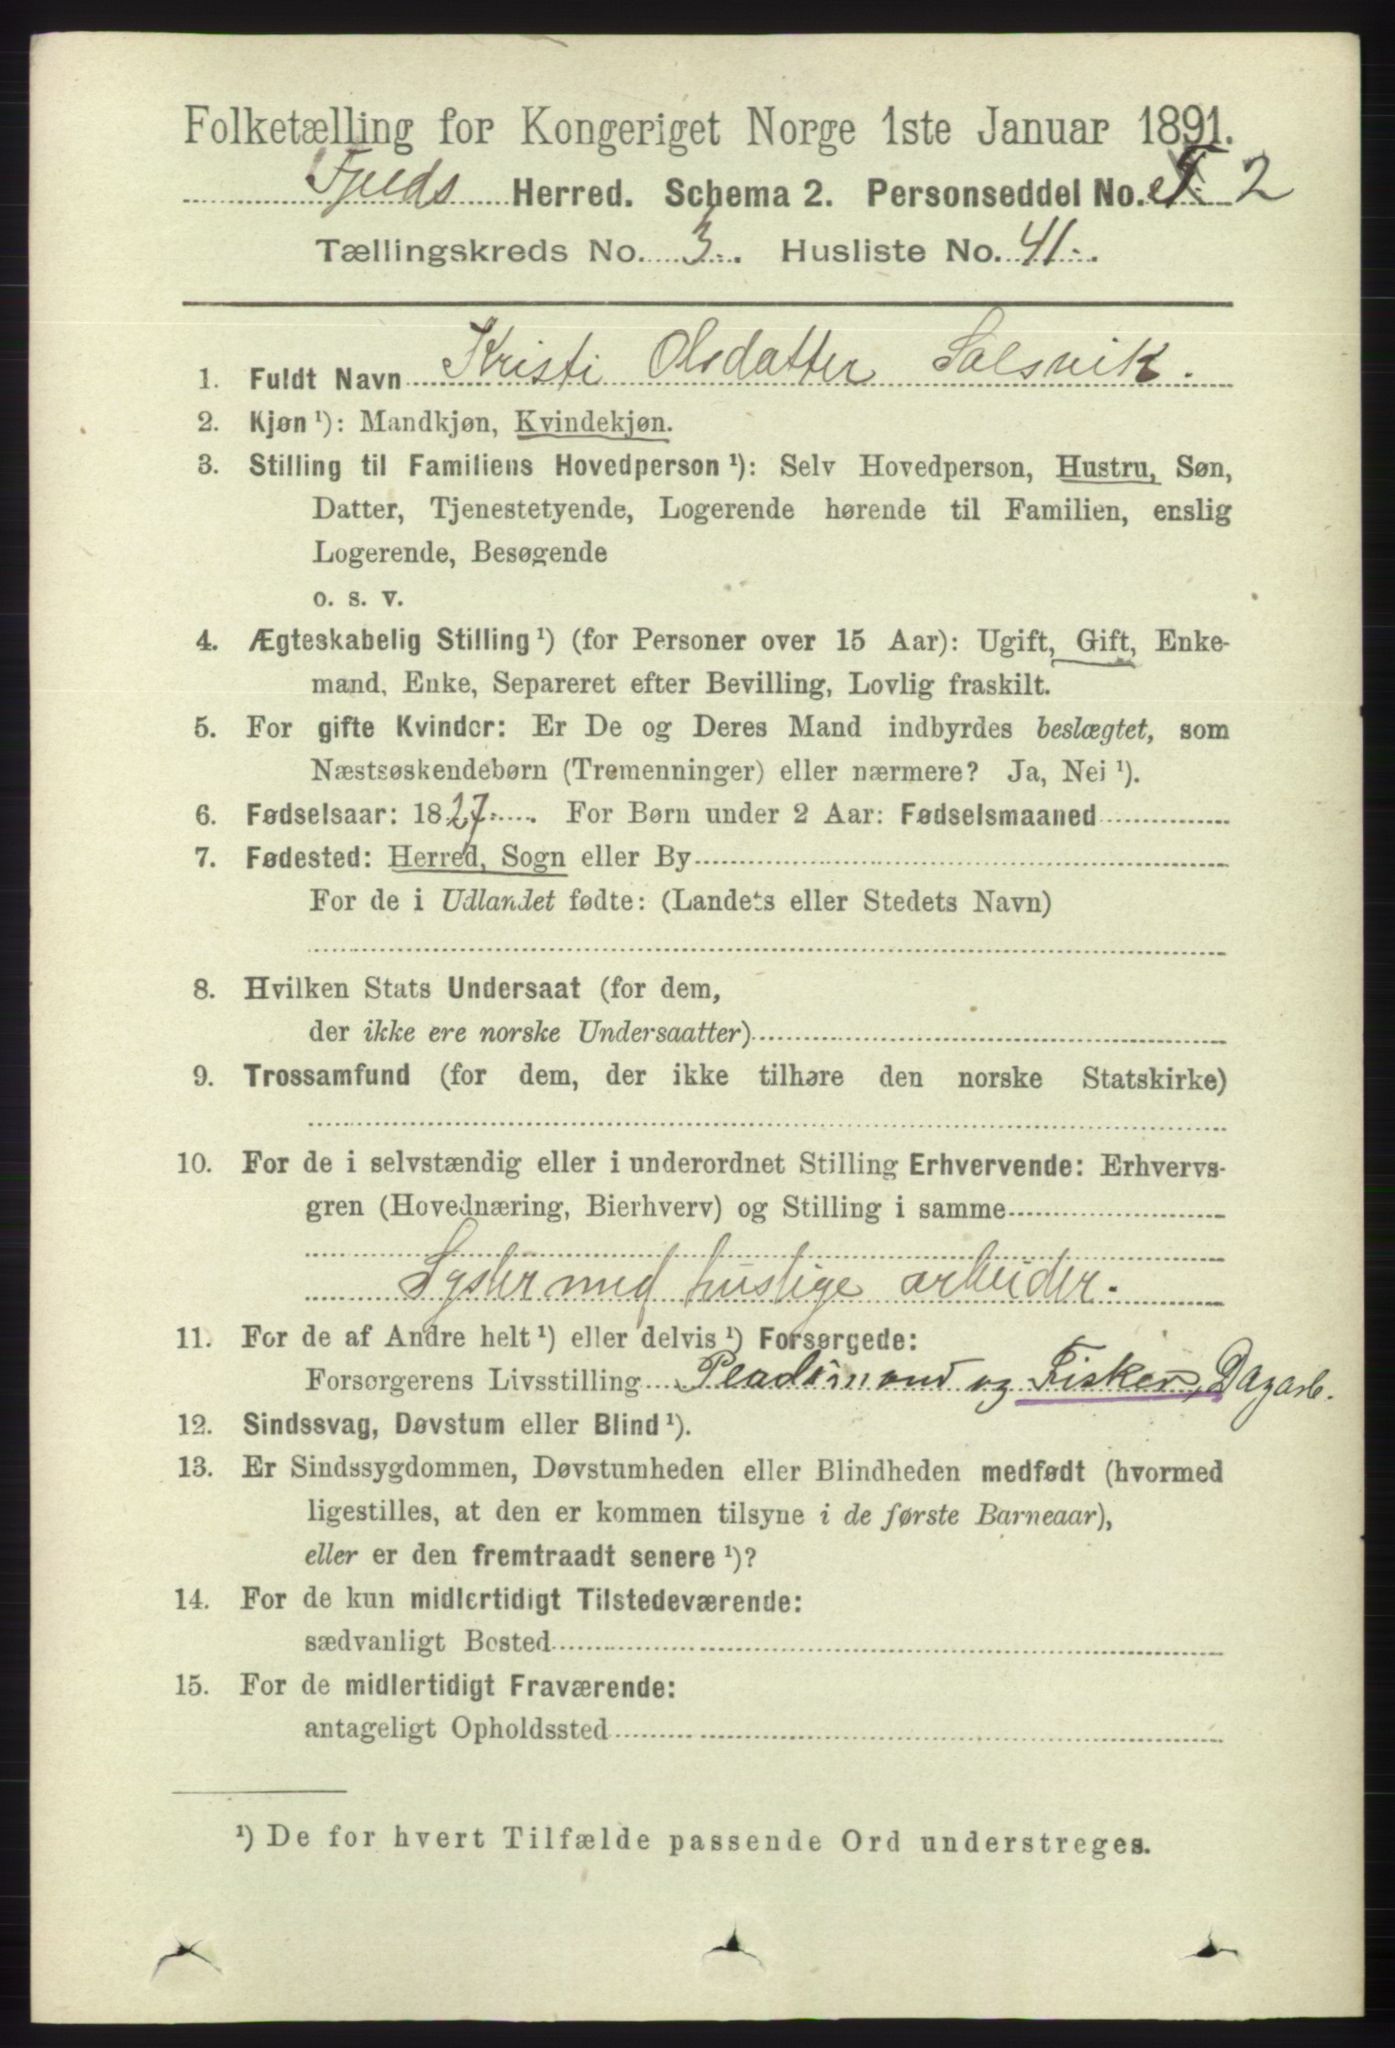 Folketælling for Kongeriget Norge 1ste Januar 1891.
Fjelds Herred. Schema 2. Personseddel No. 2
Tællingskreds No. 3. Husliste No. 41.
1. Fuldt Navn Kristi Olsdatter Solsvik.
2. Kjøn ¹): Mandkjøn, Kvindekjøn.
3. Stilling til Familiens Hovedperson ¹): Selv Hovedperson, Hustru, Søn,
Datter, Tjenestetyende, Logerende hørende til Familien, enslig
Logerende, Besøgende
o. s. v.
4. Ægteskabelig Stilling ¹) (for Personer over 15 Aar): Ugift, Gift, Enke-
mand, Enke, Separeret efter Bevilling, Lovlig fraskilt.
5. For gifte Kvinder: Er De og Deres Mand indbyrdes beslægtet, som
Næstsøskendebørn (Tremenninger) eller nærmere? Ja, Nei ¹).
6. Fødselsaar: 1827. For Børn under 2 Aar: Fødselsmaaned
7. Fødested: Herred, Sogn eller By
For de i Udlandet fødte: (Landets eller Stedets Navn)
8. Hvilken Stats Undersaat (for dem,
der ikke ere norske Undersaatter)
9. Trossamfund (for dem, der ikke tilhøre den norske Statskirke)
10. For de i selvstændig eller i underordnet Stilling Erhvervende: Erhvervs-
gren (Hovednæring, Bierhverv) og Stilling i samme
Sysler med huslige arbeider.
11. For de af Andre helt ¹) eller delvis ¹) Forsørgede:
Forsørgerens Livsstilling Pladsmand og Fisker, Dagarb.
12. Sindssvag, Døvstum eller Blind ¹).
13. Er Sindssygdommen, Døvstumheden eller Blindheden medfødt (hvormed
ligestilles, at den er kommen tilsyne i de første Barneaar),
eller er den fremtraadt senere ¹)?
14. For de kun midlertidigt Tilstedeværende:
sædvanligt Bosted
15. For de midlertidigt Fraværende:
antageligt Opholdssted
¹) De for hvert Tilfælde passende Ord understreges.